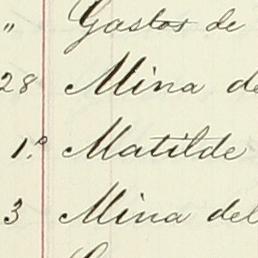 " Gastos de
28 Mina de
1.º Matilde
3 Mina del